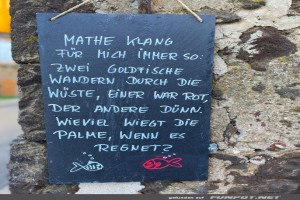 MATHE KLANG
FÜR MICH IMMER SO:
ZWEI GOLDFISCHE
WANDERN DURCH DIE
WÜSTE, EINER WAR ROT,
DER ANDERE DÜNN.
WIEVIEL WIEGT DIE
PALME, WENN ES
REGNET?
photo on FUNPOT.NET